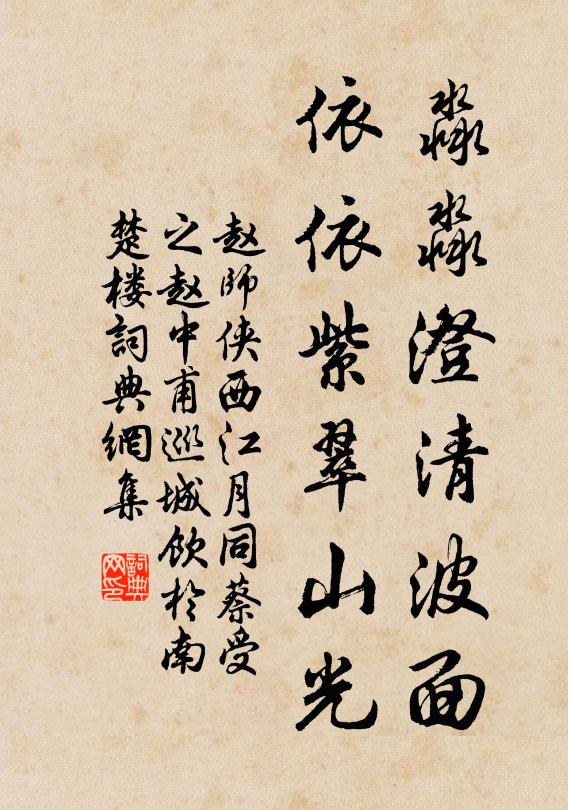 淼淼澄清波面
依依紫翠山光
赵師侠西江月同蔡受
之赵中甫巡城飲於南
楚楼詞典網集
詞典网印